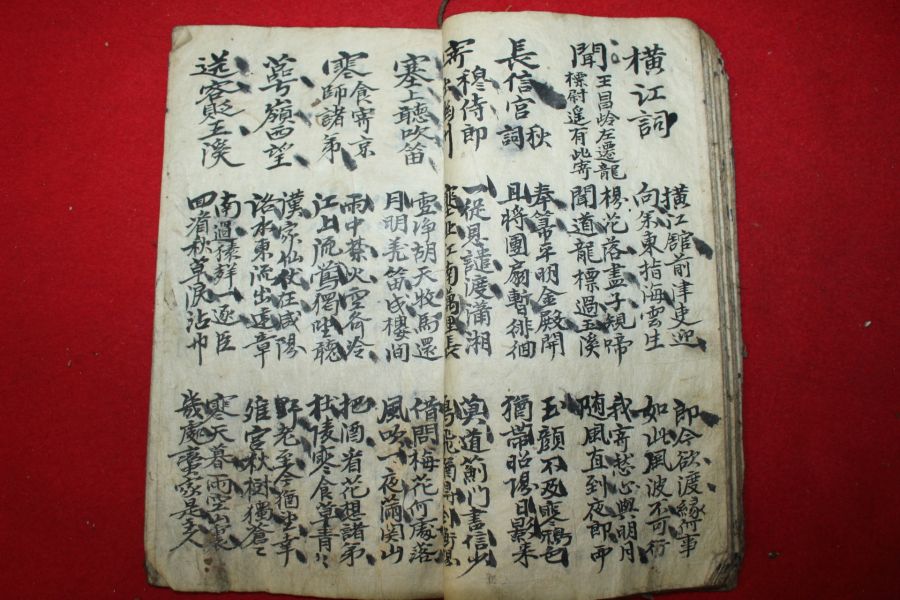 橫江詞
橫江館前津吏迎
向余東指海雲生
郎今欲渡緣何事
如此風波不可行
聞王昌岺左遷龍
標尉遙有此寄
楊花落盡子規啼
聞道龍標過五溪
我寄愁心與明月
随風直到夜郎西
長信宮秋詞
奉箒平明金殿開
且將團扇暫徘徊
玉顔不及寒鴉色
猶帶昭陽日影來
寄穆侍郎
一從恩譴渡瀟湘
塞北江南萬里長
莫道薊門書信少
塞上聽吹笛
雪净胡天牧馬還
月明羌笛戍樓間
借問梅花何處落
風吹一夜滿関山
寒食寄京
師諸弟
雨中禁火空齋冷
江上流鶯獨坐聽
把酒看花想諸弟
杜陵寒食草青〻
萼嶺西望
漢家仙仗在咸陽
洛水東流出建章
野老至今猶望幸
離宮秋樹獨蒼〻
送客貶五溪
南過猿聲一逐臣
回看秋草淚沾巾
寒天暮雨空山裏
幾處蠻家是主人